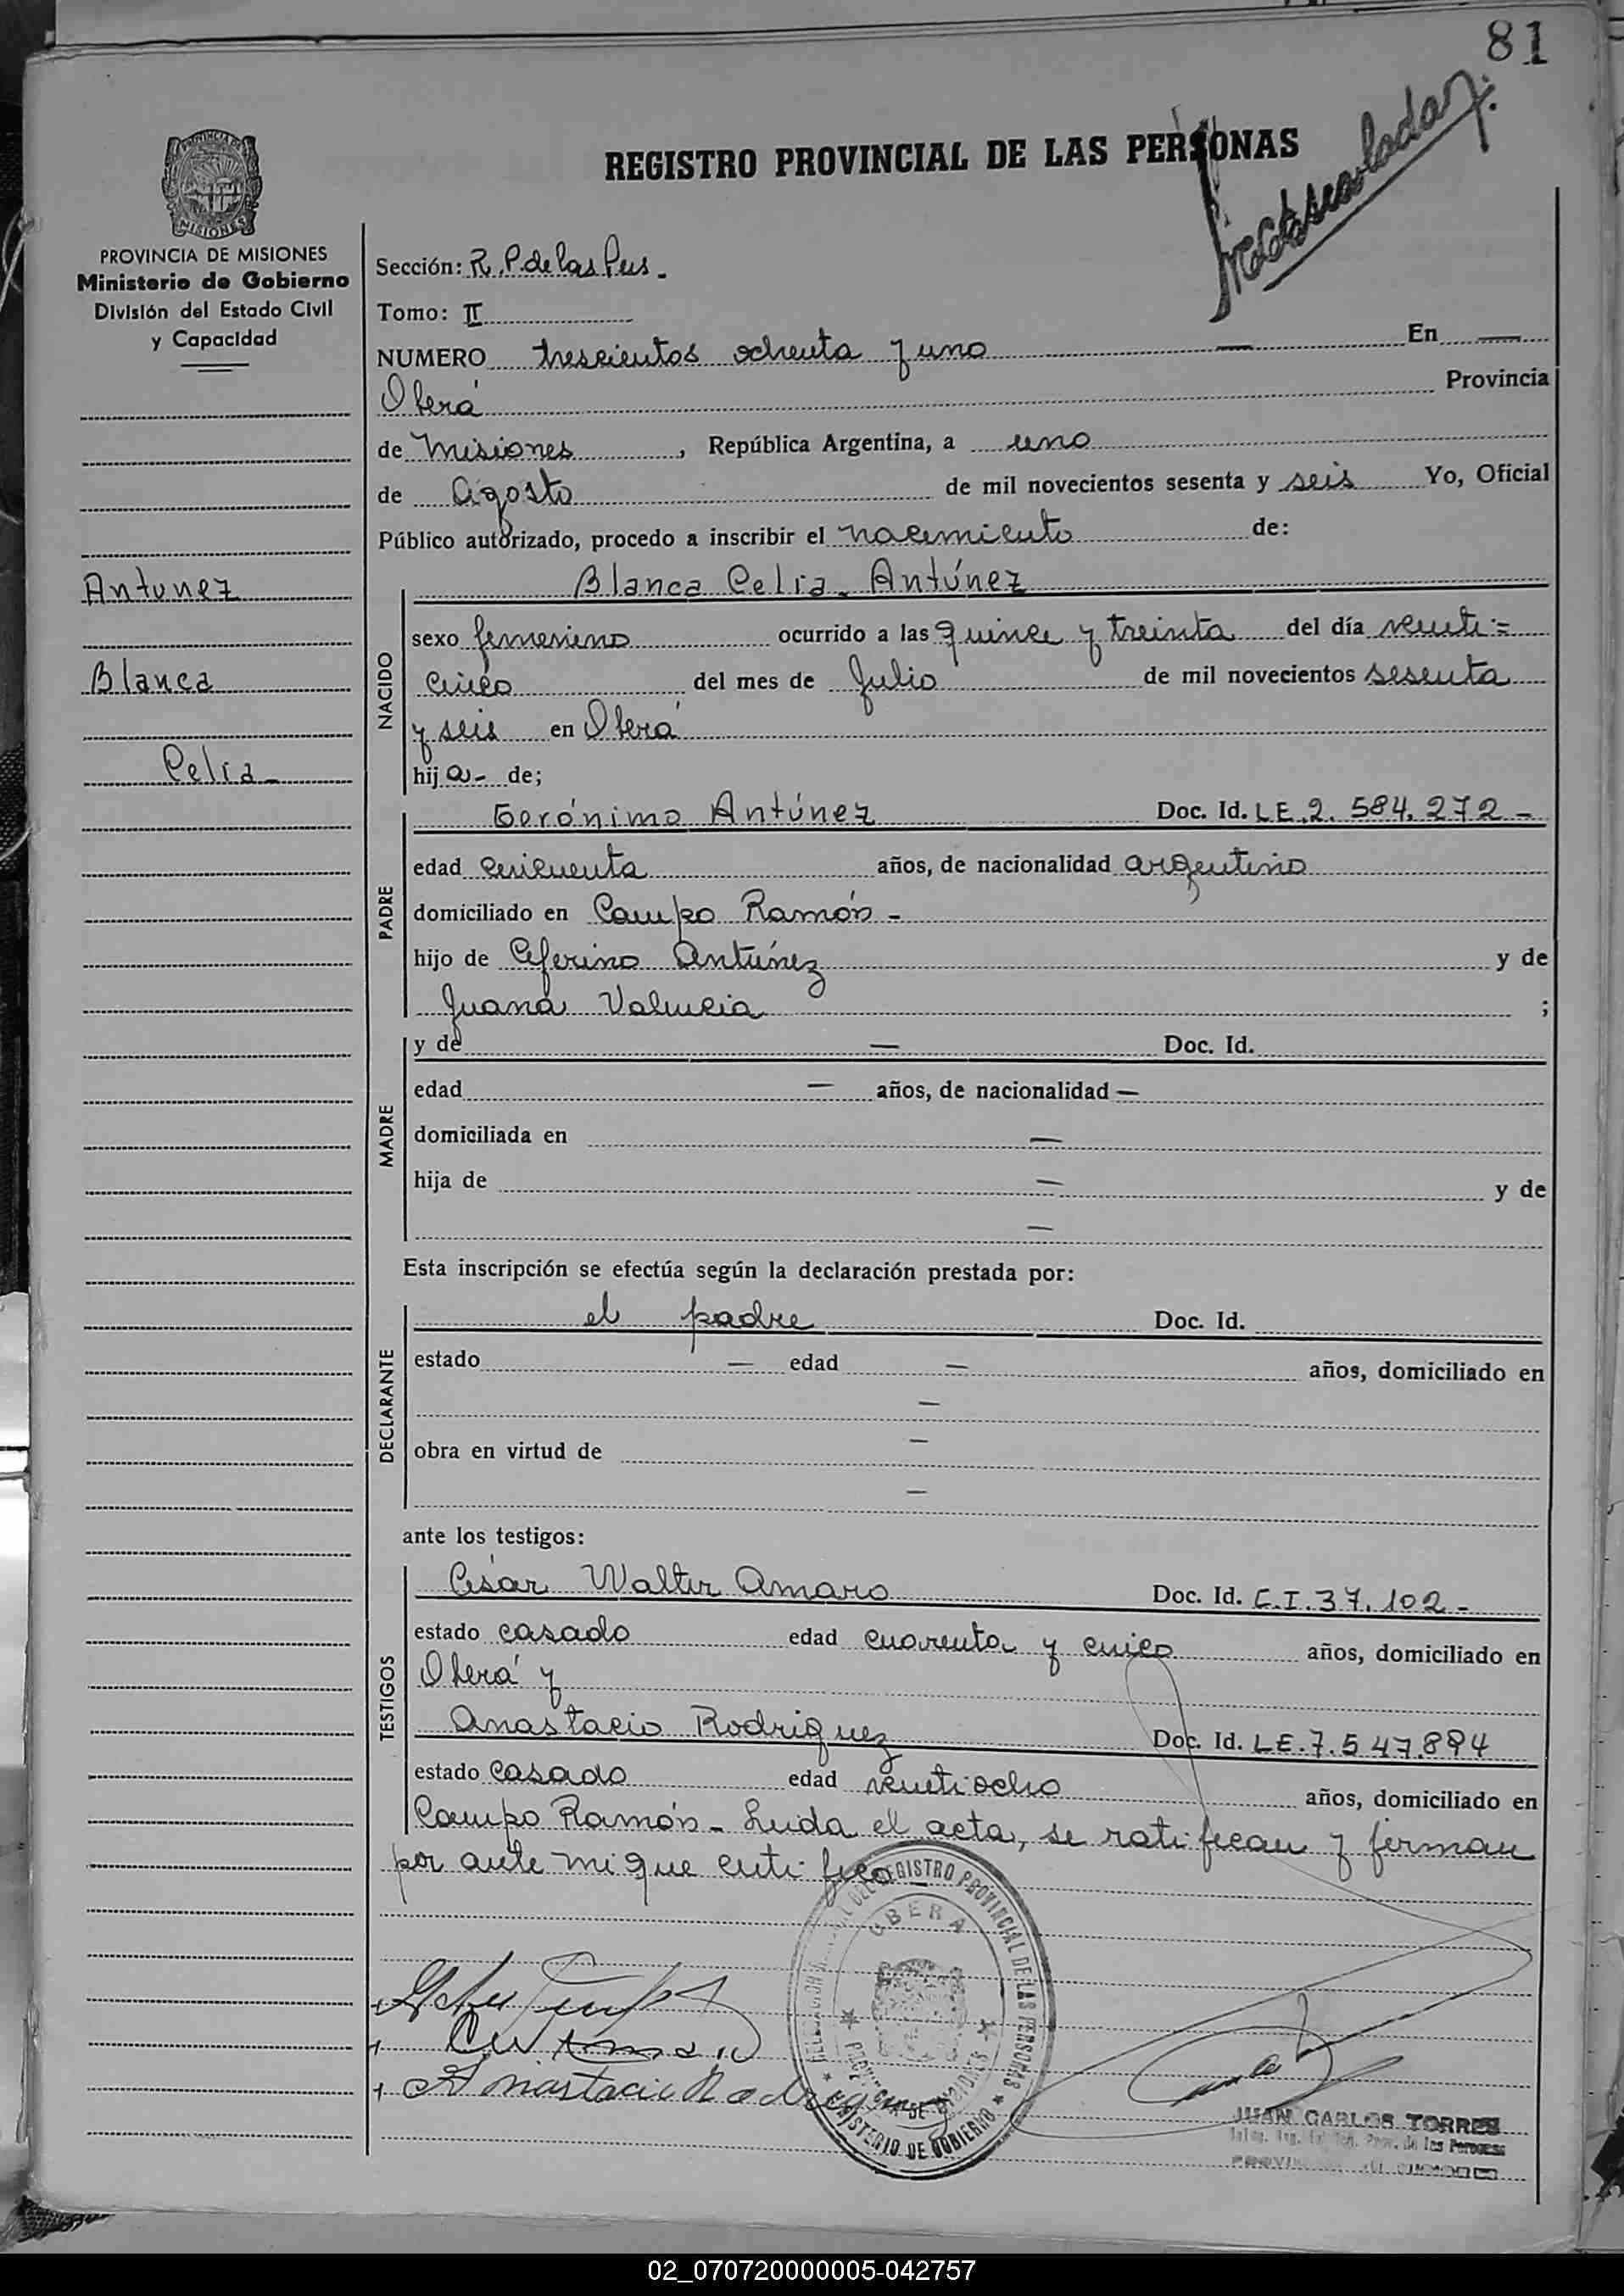 81
REGISTRO PROVINCIAL DE LAS PERSONAS
PROVINCIA DE MISIONES
Ministerio de Gobierno
División del Estado Civil
y Capacidad
Antunez
Blanca
Celia
Sección: R. P. de las Pers.
Tomo: II
NUMERO trescientos ochenta y uno — En —
Oberá Provincia
de Misiones, República Argentina, a uno
de Agosto de mil novecientos sesenta y seis Yo, Oficial
Público autorizado, procedo a inscribir el nacimiento de:
Blanca Celia Antúnez
NACIDO
sexo femenino ocurrido a las quince y treinta del día veinti=
cinco del mes de Julio de mil novecientos sesenta
y seis en Oberá
hija- de;
PADRE
Gerónimo Antúnez Doc. Id. LE.2.584.272-
edad cincuenta años, de nacionalidad argentino
domiciliado en Campo Ramón -
hijo de Ceferino Antúnez y de
Juana Valencia ;
MADRE
y de — Doc. Id.
edad — años, de nacionalidad —
domiciliada en —
hija de — y de
—
Esta inscripción se efectúa según la declaración prestada por:
DECLARANTE
el padre Doc. Id.
estado — edad — años, domiciliado en
—
obra en virtud de —
—
ante los testigos:
TESTIGOS
César Walter Amaro Doc. Id. C.I.37.102-
estado casado edad cuarenta y cinco años, domiciliado en
Oberá y
Anastacio Rodriguez Doc. Id. LE.7.547.894
estado casado edad veintiocho años, domiciliado en
Campo Ramón - Leida el acta, se ratifican y firman
por ante mi que certifico
REGISTRO PROVINCIAL DE LAS PERSONAS
OBERA
PROVINCIA DE MISIONES
MINISTERIO DE GOBIERNO
Anastacio Rodriguez
JUAN CARLOS TORRES
Prov. de las Personas
02_070720000005-042757